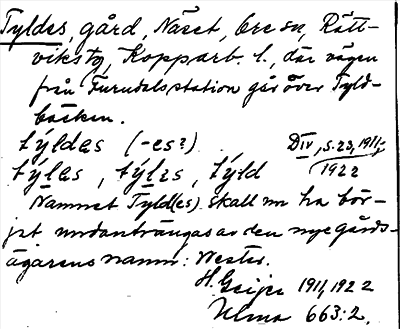 Tyldes, gård, Näset, Ore sn, Rätt-
viks tg, Kopparb. l., där vägen
från Furudals station går över Tyld-
bäcken.
týldas (-es?) DIV, s. 23, 1911,
týlas, týlɛs, týld 1922
Namnet Tyld(es) skall nu ha bör-
jat undanträngas av den nye gårds-
ägarens namn: Wester.
H. Geijer 1911, 1922
Ulma 663:2.